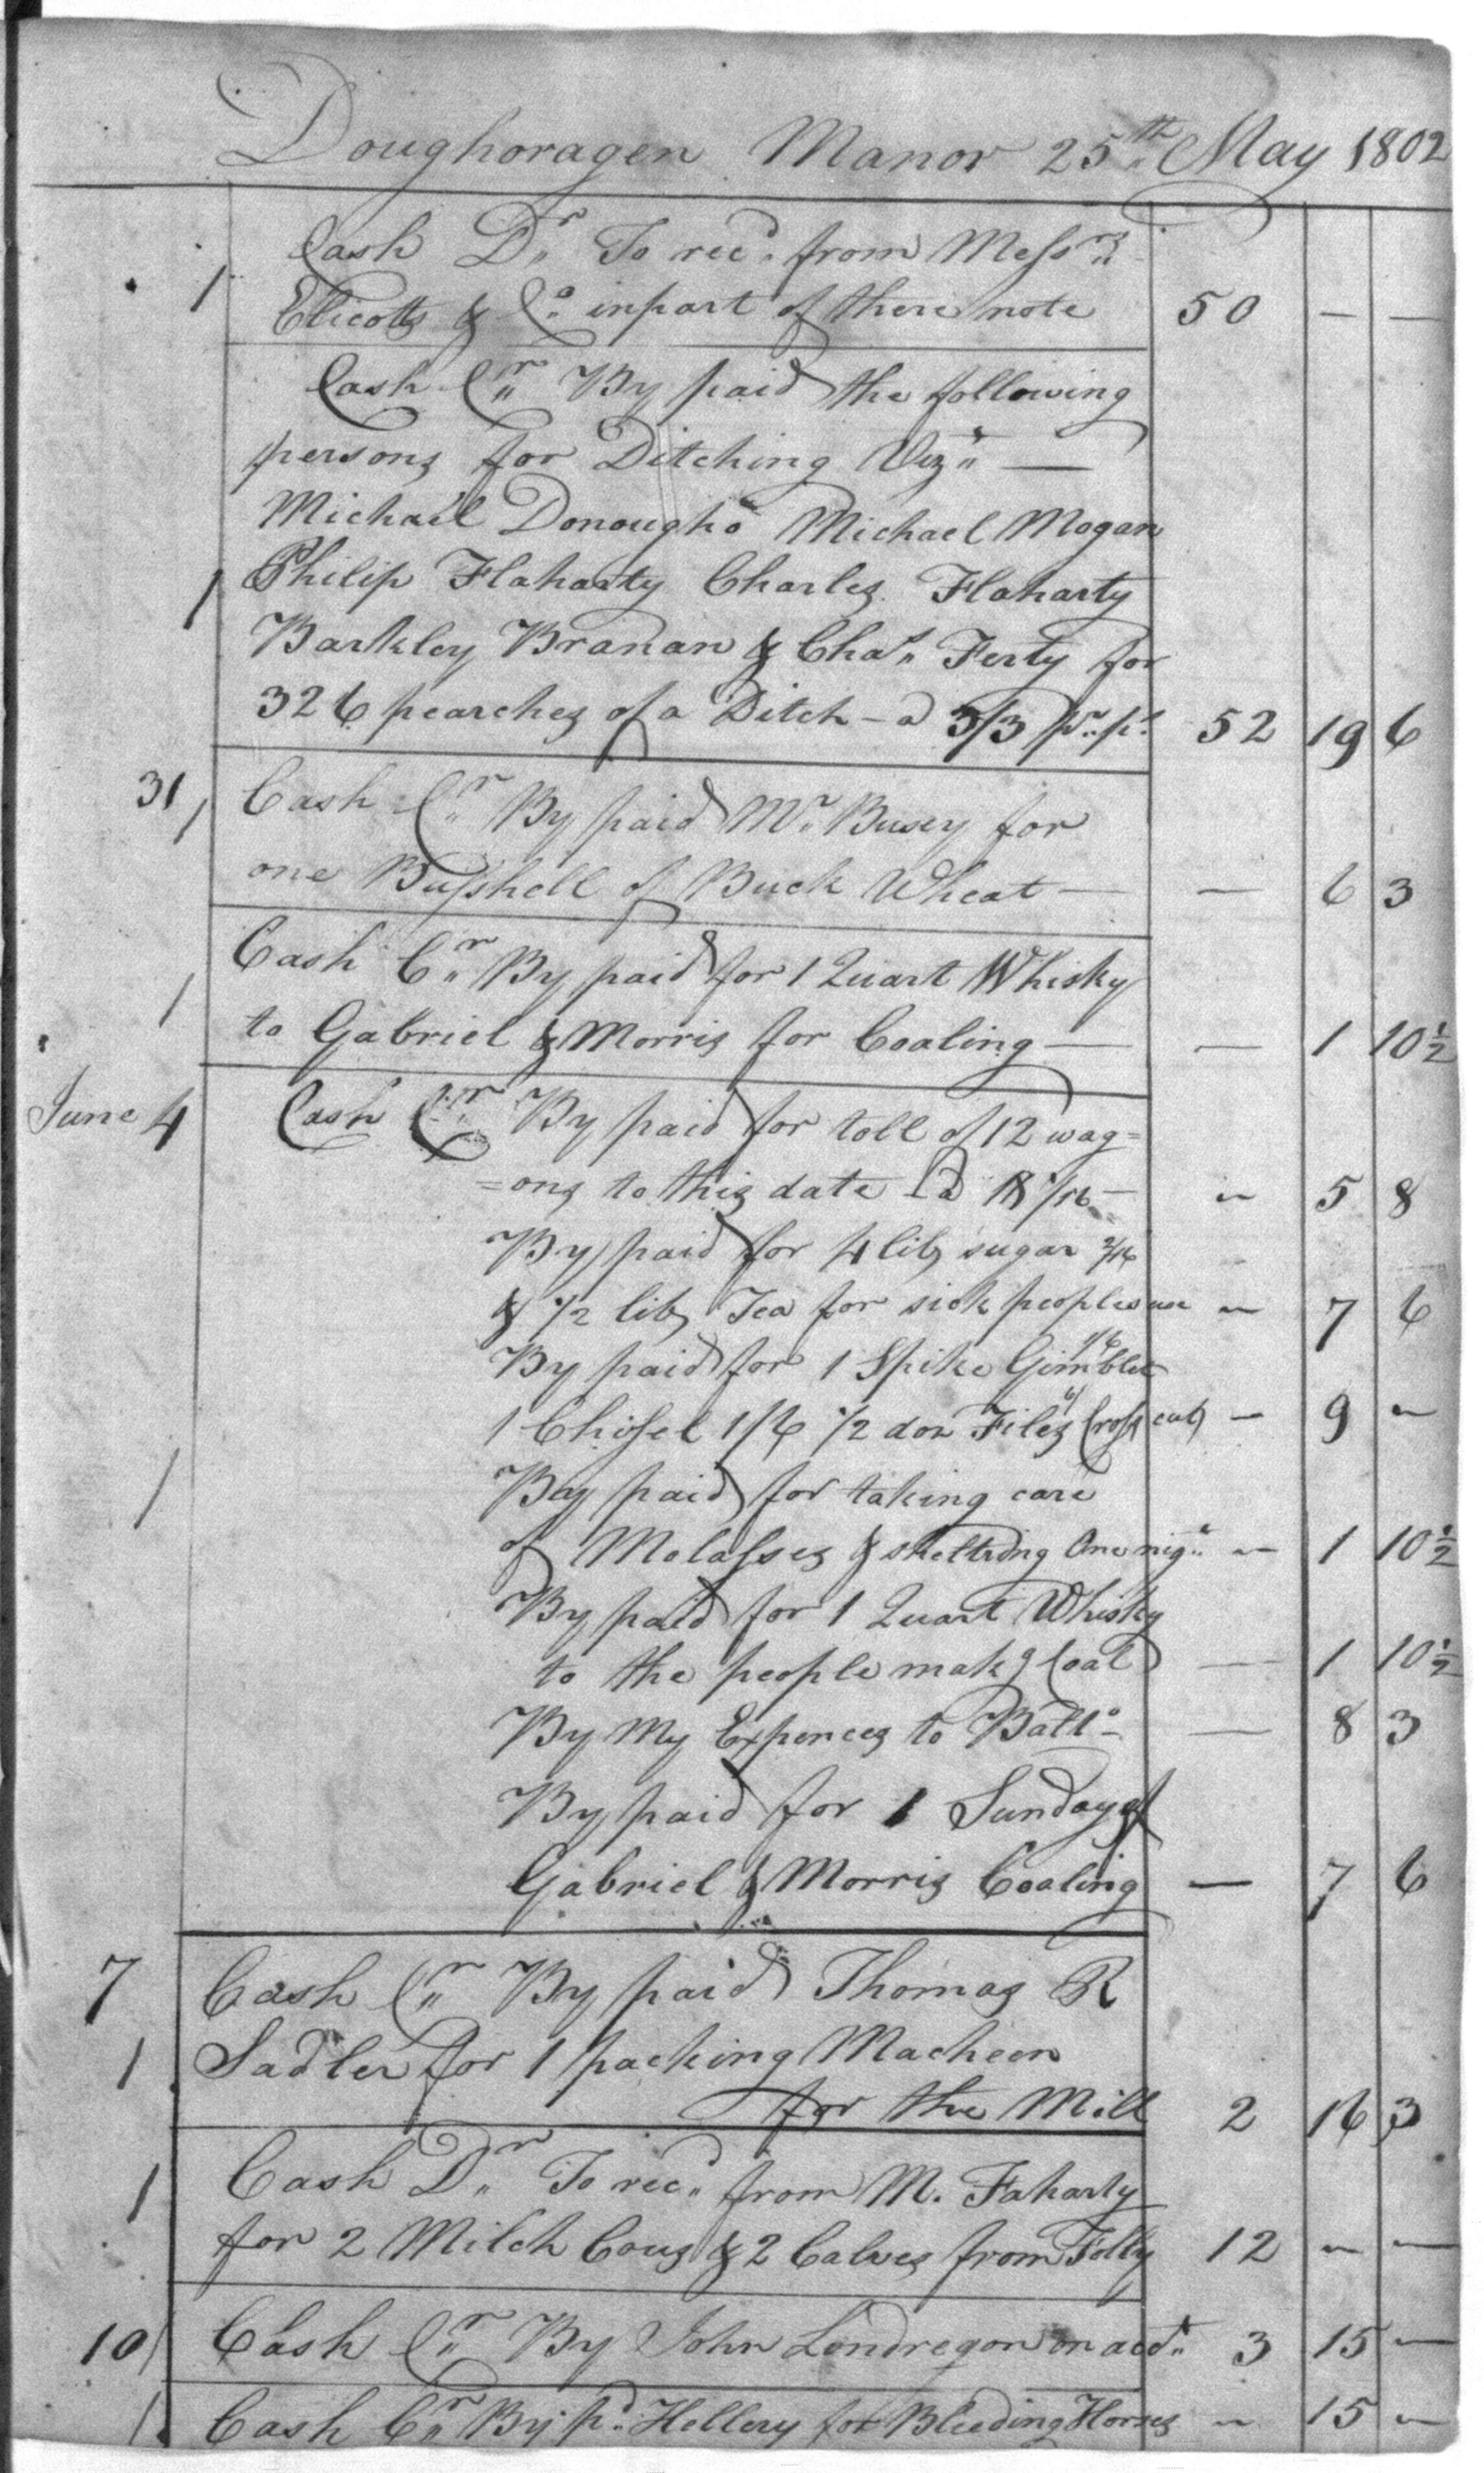 Doughoragen Manor 25th May 1802
Cash Dr To recd from Messrs
1 Elicotts & Co inpart of there note 50 — —
Cash Cr By paid the following
persons for Ditching Viz —
Michael Donougho Michael Mogan
1 Philip Flaharty Charles Flaharty
Barkley Branan & Chas Ferty for
326 pearches of a Ditch - a 3/3 pr ps 52 19 6
31 1 Cash Cr By paid Mr Busey for
one Busshell of Buck Wheat — — 6 3
Cash Cr By paid for 1 Quart Whisky
1 to Gabriel & Morris for Coaling — — 1 10½
June 4 Cash Cr By paid for toll of 12 wag=
=ons to this date — 5 8
By paid for 4 lib sugar 2/6
& 1/2 lib Tea for sick peoples use — 7 6
By paid for 1 Spike Gimblet 1/6
1 Chissel 1/6 1/2 doz Files 6/ Cross cut — 9 —
1 By paid for taking care
of Molasses & sheltring One nig — 1 10½
By paid for 1 Quart Whisky
to the people makg Coal — 1 10½
By My Expences to Balto — — 8 3
By paid for 1 Sunday of
Gabriel & Morris Coaling — 7 6
7 Cash Cr By paid Thomas R
1 Sadler for 1 packing Macheen
for the Mill 2 16 3
1 Cash Dr To recd from M. Faharty
for 2 Milch Cows & 2 Calves from Folly 12 — —
10 1 Cash Cr By John Londregon on acct 3 15 —
1 Cash Cr By pd Hellery for Bleeding Horses — 15 —